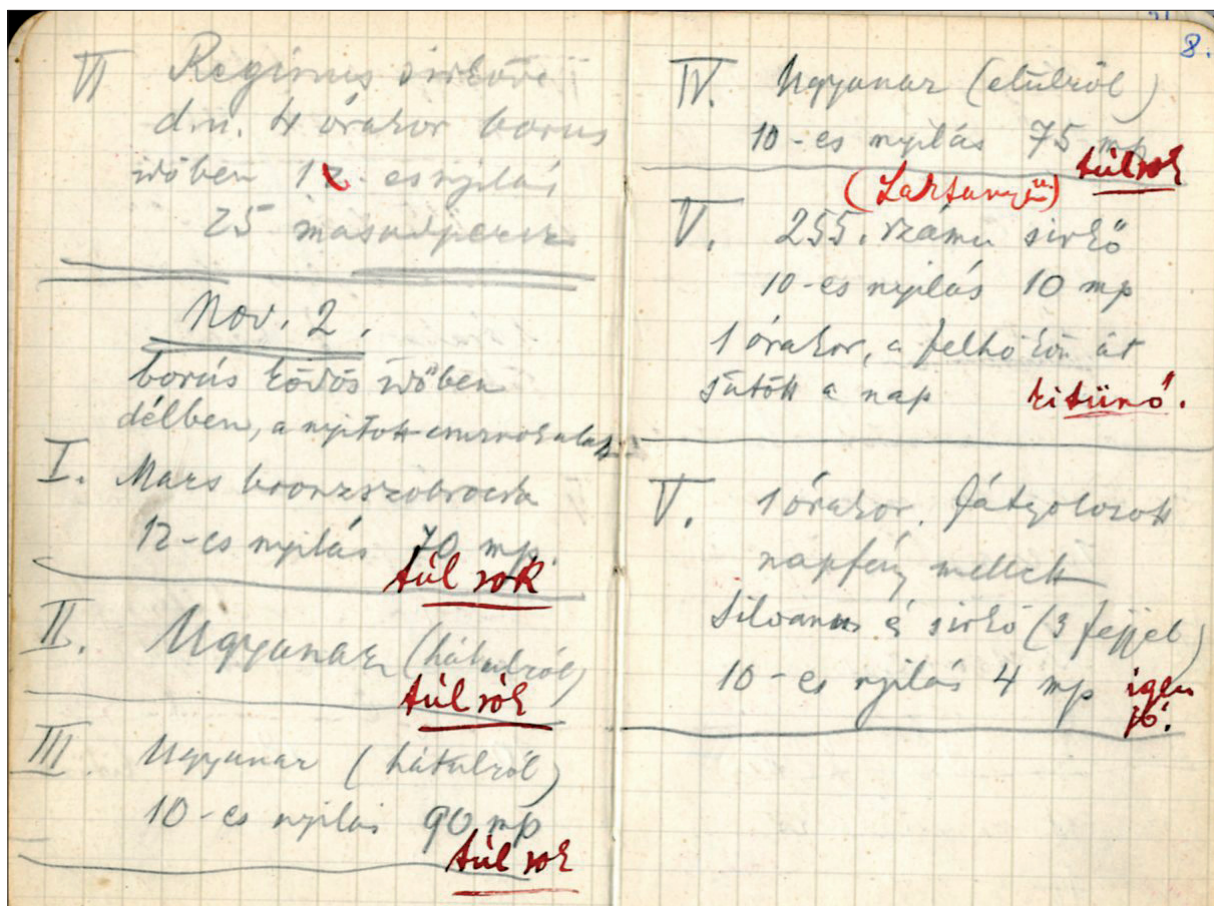 VI Reginus sirköve
d.u. 4 órakor borus
időben 12-es nyilás
25 másodpercre
Nov. 2.
borús ködös időben
délben, a nyitott
I. Mars bronzszobrocska
12-es nyilás 70 mp.
túl sok
II. Ugyanaz (hátulról)
túl sok
III. Ugyanaz (hátulról)
10-es nyilás 90 mp
túl sok
8.
IV. Ugyanaz (elülről)
10-es nyilás 75 mp
túl sok
V. 255. számu sirkő
10-es nyilás 10 mp
1 órakor, a felhőkön át
sütött a nap kitünő.
V. 1 órakor. fátyolozott
napfény mellett
Silvanus és sirkő (3 fejjel)
10-es nyilás 4 mp igen
jó.